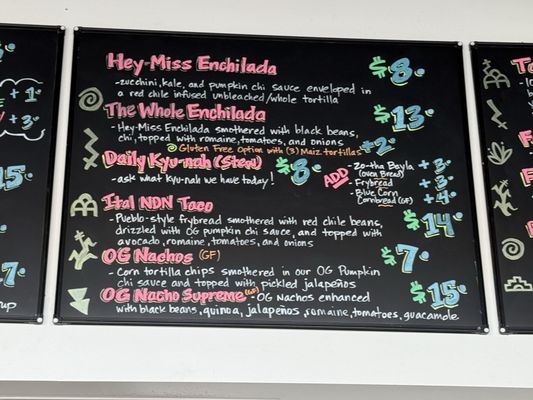 Hey-Miss Enchilada $8
-zucchini, kale, and pumpkin chi sauce enveloped in
a red chile infused unbleached/whole tortilla
The Whole Enchilada $13
-Hey-Miss Enchilada smothered with black beans,
chi, topped with romaine, tomatoes, and onions
Gluten Free Option with (3) Maiz tortillas +2
Daily Kyu-nah (Stew) $8
-ask what Kyu-nah we have today!
ADD
-Zo:tha Bayla +3
(oven Bread)
-Frybread +3
-Blue Corn +4
Cornbread (GF)
Ital NDN Taco $14
-Pueblo-style frybread smothered with red chile beans,
drizzled with OG pumpkin chi sauce, and topped with
avocado, romaine, tomatoes, and onions
OG Nachos (GF) $7
-Corn tortilla chips smothered in our OG Pumpkin
chi sauce and topped with pickled jalapeños
OG Nacho Supreme (GF) -OG Nachos enhanced $15
with black beans, quinoa, jalapeños, romaine, tomatoes, guacamole
+1
+3
15
7